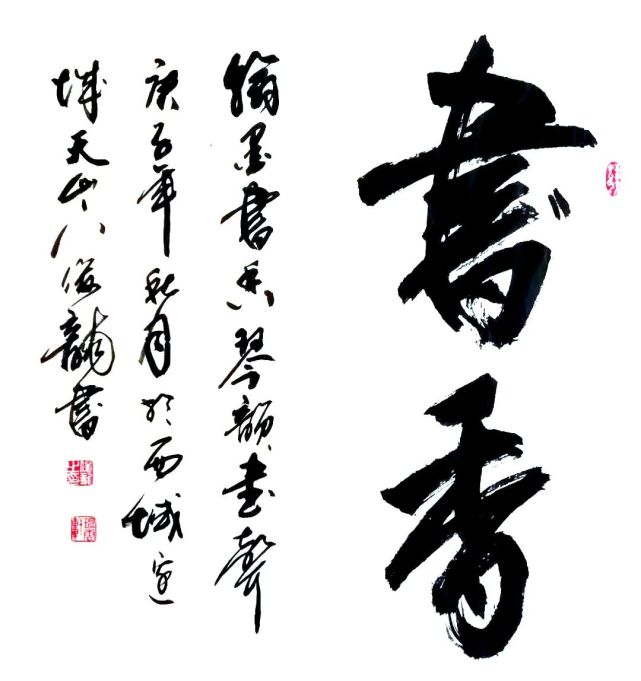 書香
翰墨書香琴韻書聲
庚子年秋月於西域邊
城天山人俊龍書